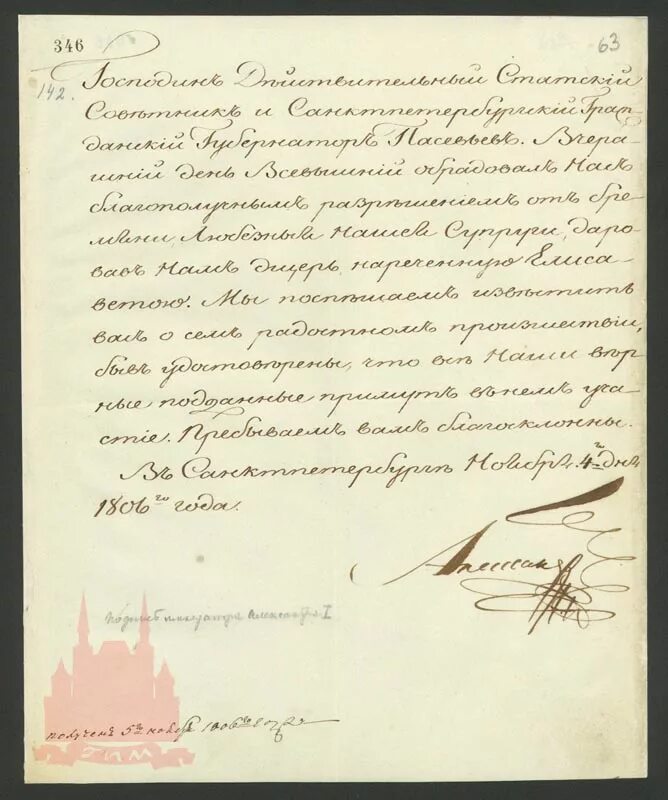 346
63
142.
Господинъ Дѣйствительный Статскій
Совѣтникъ и Санктпетербургскій Граж-
данскій Губернаторъ Пасевьевъ. Вчера-
шній день Всевышній обрадовалъ Насъ
благополучнымъ разрѣшеніемъ отъ бре-
мѣни Любезныя Нашей Супруги, даро-
вавъ Намъ дщерь нареченную Елиса-
ветою. Мы поспѣшаемъ извѣстить
васъ о семъ радостномъ произшествіи,
бывъ удостовѣрены, что всѣ Наши вѣр-
ные подданные примутъ въ немъ уча-
стіе. Пребываемъ вамъ благосклонны.
Въ Санктпетербургѣ Ноября 4го дня
1806го года.
Александръ
Подпись императора Александра I
получено 5го ноября 1806го года
ГИМ